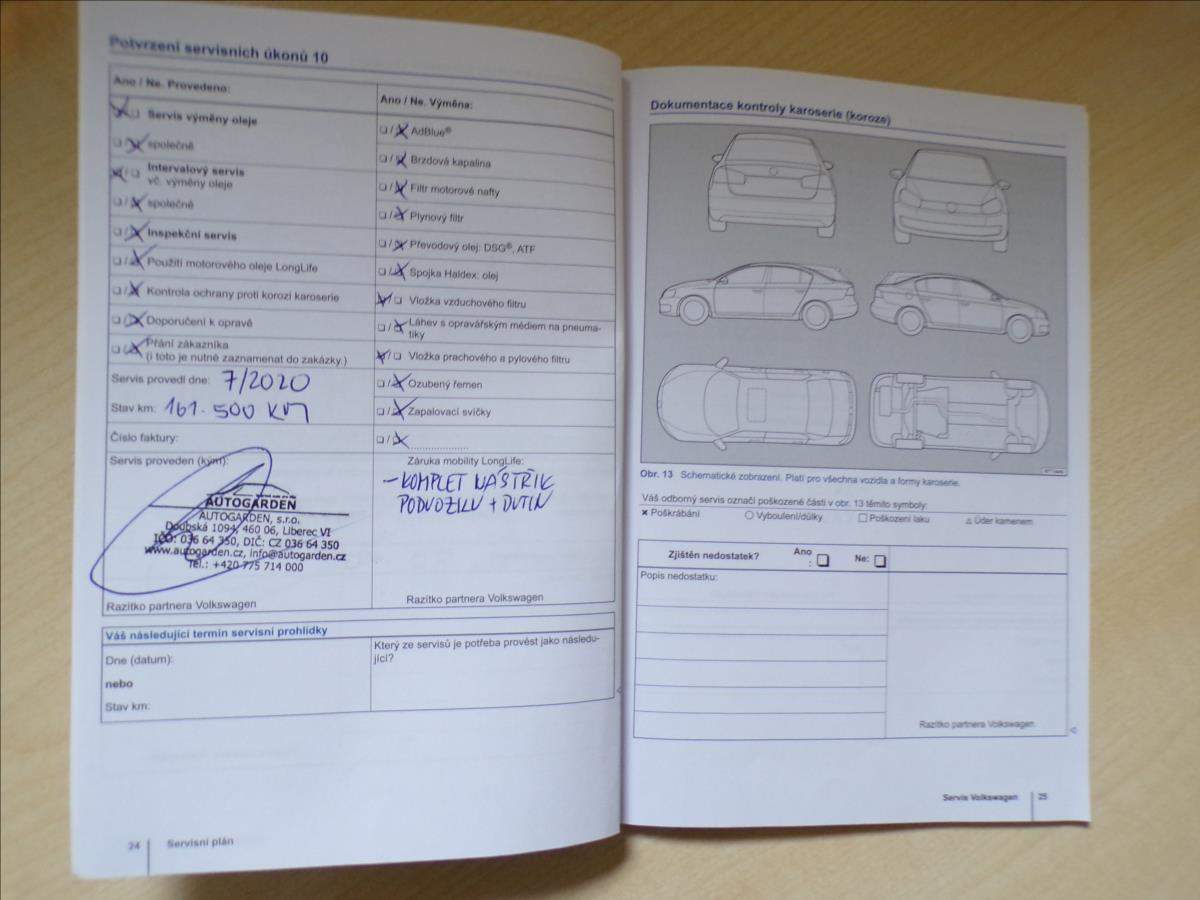 Potvrzení servisních úkonů 10
Ano / Ne. Provedeno:
Servis výměny oleje
společně
Intervalový servis
vč. výměny oleje
společně
Inspekční servis
Použití motorového oleje LongLife
Kontrola ochrany proti korozi karoserie
Doporučení k opravě
Přání zákazníka
(i toto je nutné zaznamenat do zakázky.)
Servis provedl dne: 7/2020
Stav km: 161.500 KM
Číslo faktury:
Servis proveden (kým):
AUTOGARDEN
AUTOGARDEN, s.r.o.
Doubská 1094, 460 06, Liberec VI
IČO: 036 64 350, DIČ: CZ 036 64 350
www.autogarden.cz, info@autogarden.cz
Tel.: +420 775 714 000
Razítko partnera Volkswagen
Ano / Ne. Výměna:
AdBlue®
Brzdová kapalina
Filtr motorové nafty
Plynový filtr
Převodový olej: DSG®, ATF
Spojka Haldex: olej
Vložka vzduchového filtru
Láhev s opravářským médiem na pneuma-
tiky
Vložka prachového a pylového filtru
Ozubený řemen
Zapalovací svíčky
Záruka mobility LongLife:
- KOMPLET NÁSTŘIK
PODVOZKU + DUTIN
Razítko partnera Volkswagen
Váš následující termín servisní prohlídky
Dne (datum):
nebo
Stav km:
Který ze servisů je potřeba provést jako následu-
jící?
24 Servisní plán
Dokumentace kontroly karoserie (koroze)
Obr. 13 Schematické zobrazení. Platí pro všechna vozidla a formy karoserie.
Váš odborný servis označí poškozené části v obr. 13 těmito symboly:
× Poškrábání ○ Vyboulení/důlky □ Poškození laku △ Úder kamenem
Zjištěn nedostatek? Ano
: Ne:
Popis nedostatku:
Razítko partnera Volkswagen
Servis Volkswagen 25